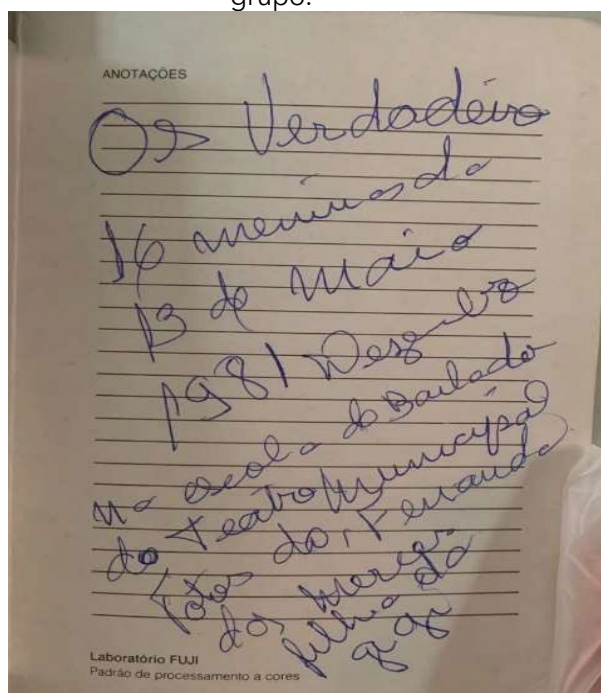 grupo.
ANOTAÇÕES
Os Verdadeiro
16 meninos do
13 de Maio
1981 Dezembro
na escola do Bailado
do Teatro Municipal
Fotos do, Fernando
dos
filho da
gigi
Laboratório FUJI
Padrão de processamento a cores